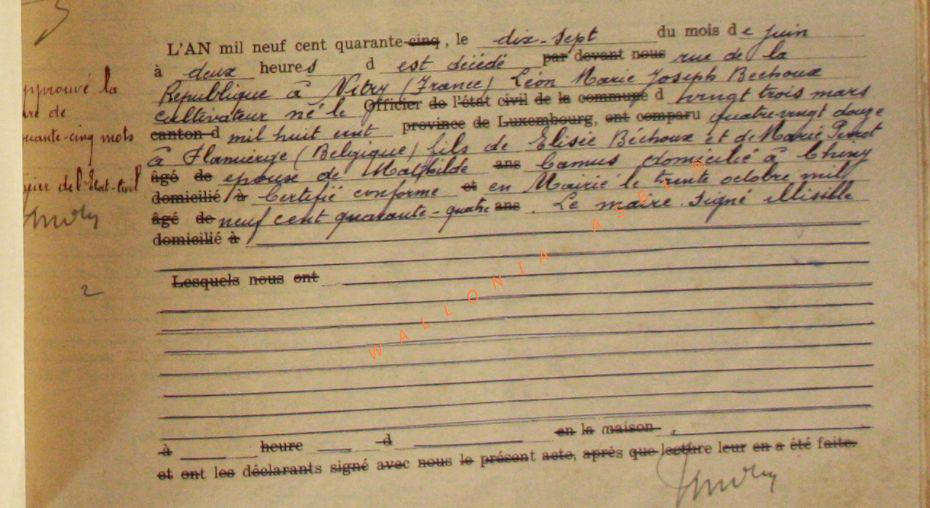 L'AN mil neuf cent quarante-cinq, le dix-sept du mois de juin
à deux heures d est décédé par devant nous rue de la
République à Vitry (France) Léon Marie Joseph Bechoux
cultivateur né le Officier de l'état civil de la commune d vingt trois mars
canton d mil huit cent province de Luxembourg, ont comparu quatre-vingt douze
à Flamierge (Belgique) fils de Elisée Béchoux et de Marie
âgé de epouse de Mathilde ans Camus domicilié à Chiny
domicilié à Certifié conforme et en Mairie le trente octobre mil
âgé de neuf cent quarante-quatre ans. Le maire. Signé illisible
domicilié à
Lesquels nous ont
à heure d en la maison
et ont les déclarants signé avec nous le présent acte, après que lecture leur en a été faite.
approuvé la
de
quante-cinq mots
l'Etat-Civil
2
WALLONIA ASBL